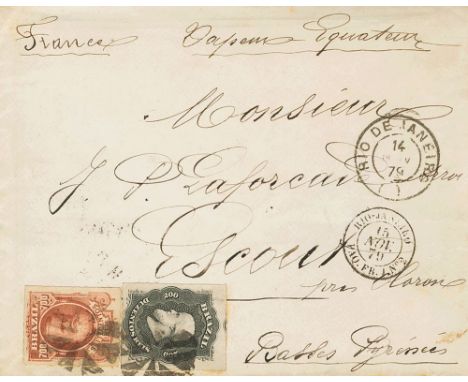 France
Vapeur Equateur
Monsieur
RIO DE JANEIRO
14
79
J. P. Laforcade
RIO-JANEIRO
15
AVRIL
79
PAQ. FR. J. Nº 5
Escout
près Oloron
Basses Pyrénées
BRAZIL
700
700
200
BRAZIL
DUZENTOS
200